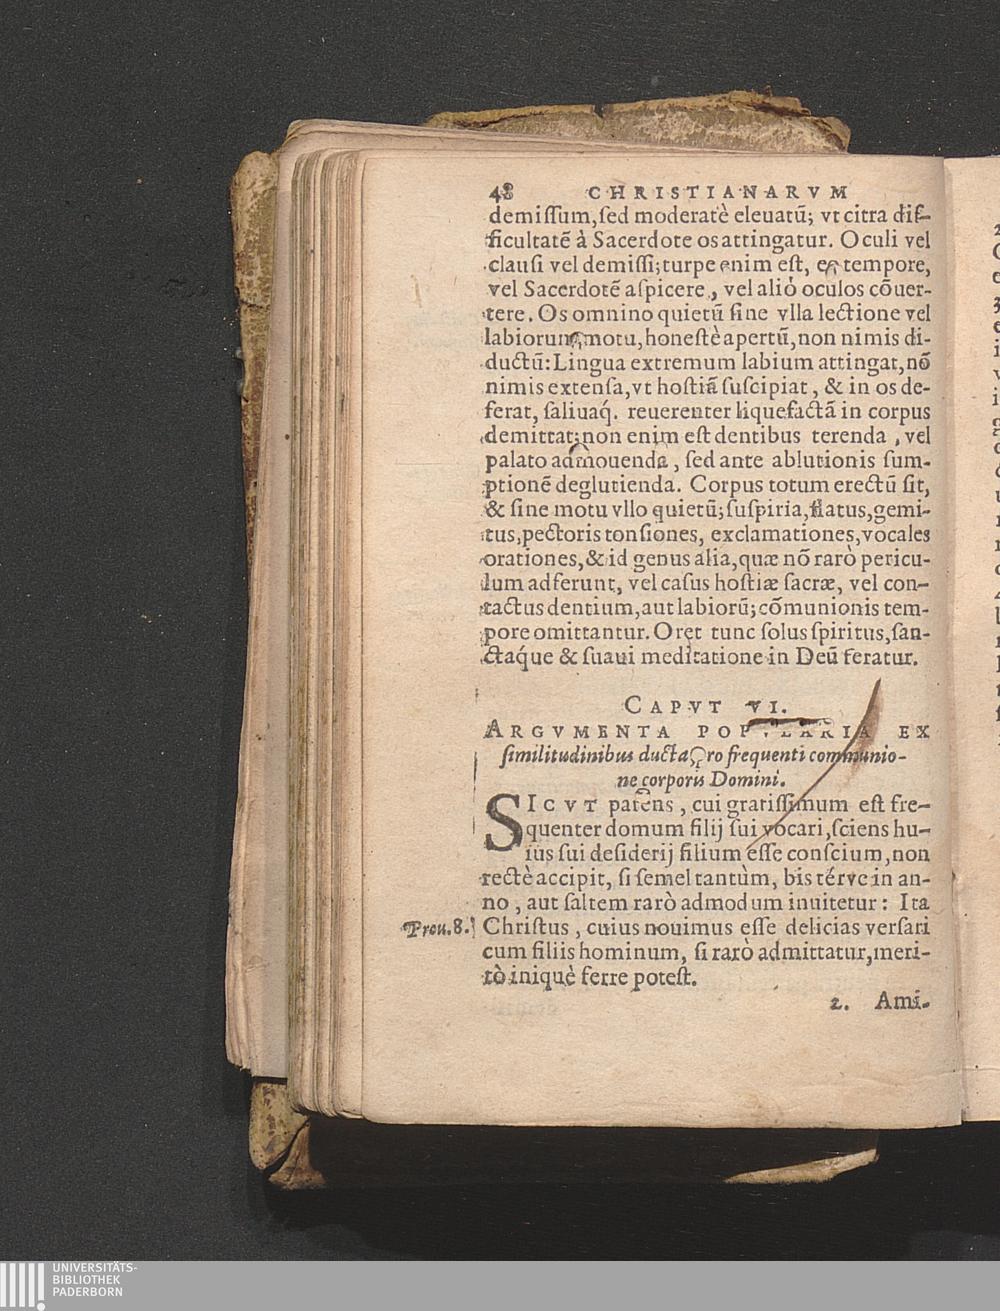 48 CHRISTIANARVM
demiſſum, ſed moderatè eleuatū; vt citra dif-
ficultatē à Sacerdote os attingatur. Oculi vel
clauſi vel demiſſi; turpe enim eſt, eo tempore,
vel Sacerdotē aſpicere, vel aliò oculos cōuer-
tere. Os omnino quietū ſine vlla lectione vel
labiorum motu, honeſtè apertū, non nimis di-
ductū: Lingua extremum labium attingat, nō
nimis extenſa, vt hoſtiā ſuſcipiat, & in os de-
ferat, ſaliuaq́. reuerenter liquefactā in corpus
demittat; non enim eſt dentibus terenda, vel
palato admouenda, ſed ante ablutionis ſum-
ptionē deglutienda. Corpus totum erectū ſit,
& ſine motu vllo quietū; ſuſpiria, flatus, gemi-
tus, pectoris tonſiones, exclamationes, vocales
orationes, & id genus alia, quæ nō rarò pericu-
lum adferunt, vel caſus hoſtiæ ſacræ, vel con-
tactus dentium, aut labiorū; cōmunionis tem-
pore omittantur. Oret tunc ſolus ſpiritus, ſan-
ctaq́ue & ſuaui meditatione in Deū feratur.
CAPVT VI.
ARGVMENTA POPVLARIA EX
ſimilitudinibus ducta pro frequenti communio-
ne corporis Domini.
SICVT parens, cui gratiſſimum eſt fre-
quenter domum filij ſui vocari, ſciens hu-
ius ſui deſiderij filium eſſe conſcium, non
rectè accipit, ſi ſemel tantùm, bis térve in an-
no, aut ſaltem rarò admodum inuitetur: Ita
Prou. 8. Chriſtus, cuius nouimus eſſe delicias verſari
cum filiis hominum, ſi rarò admittatur, meri-
tò iniquè ferre poteſt.
2. Ami-
UNIVERSITÄTS-
BIBLIOTHEK
PADERBORN